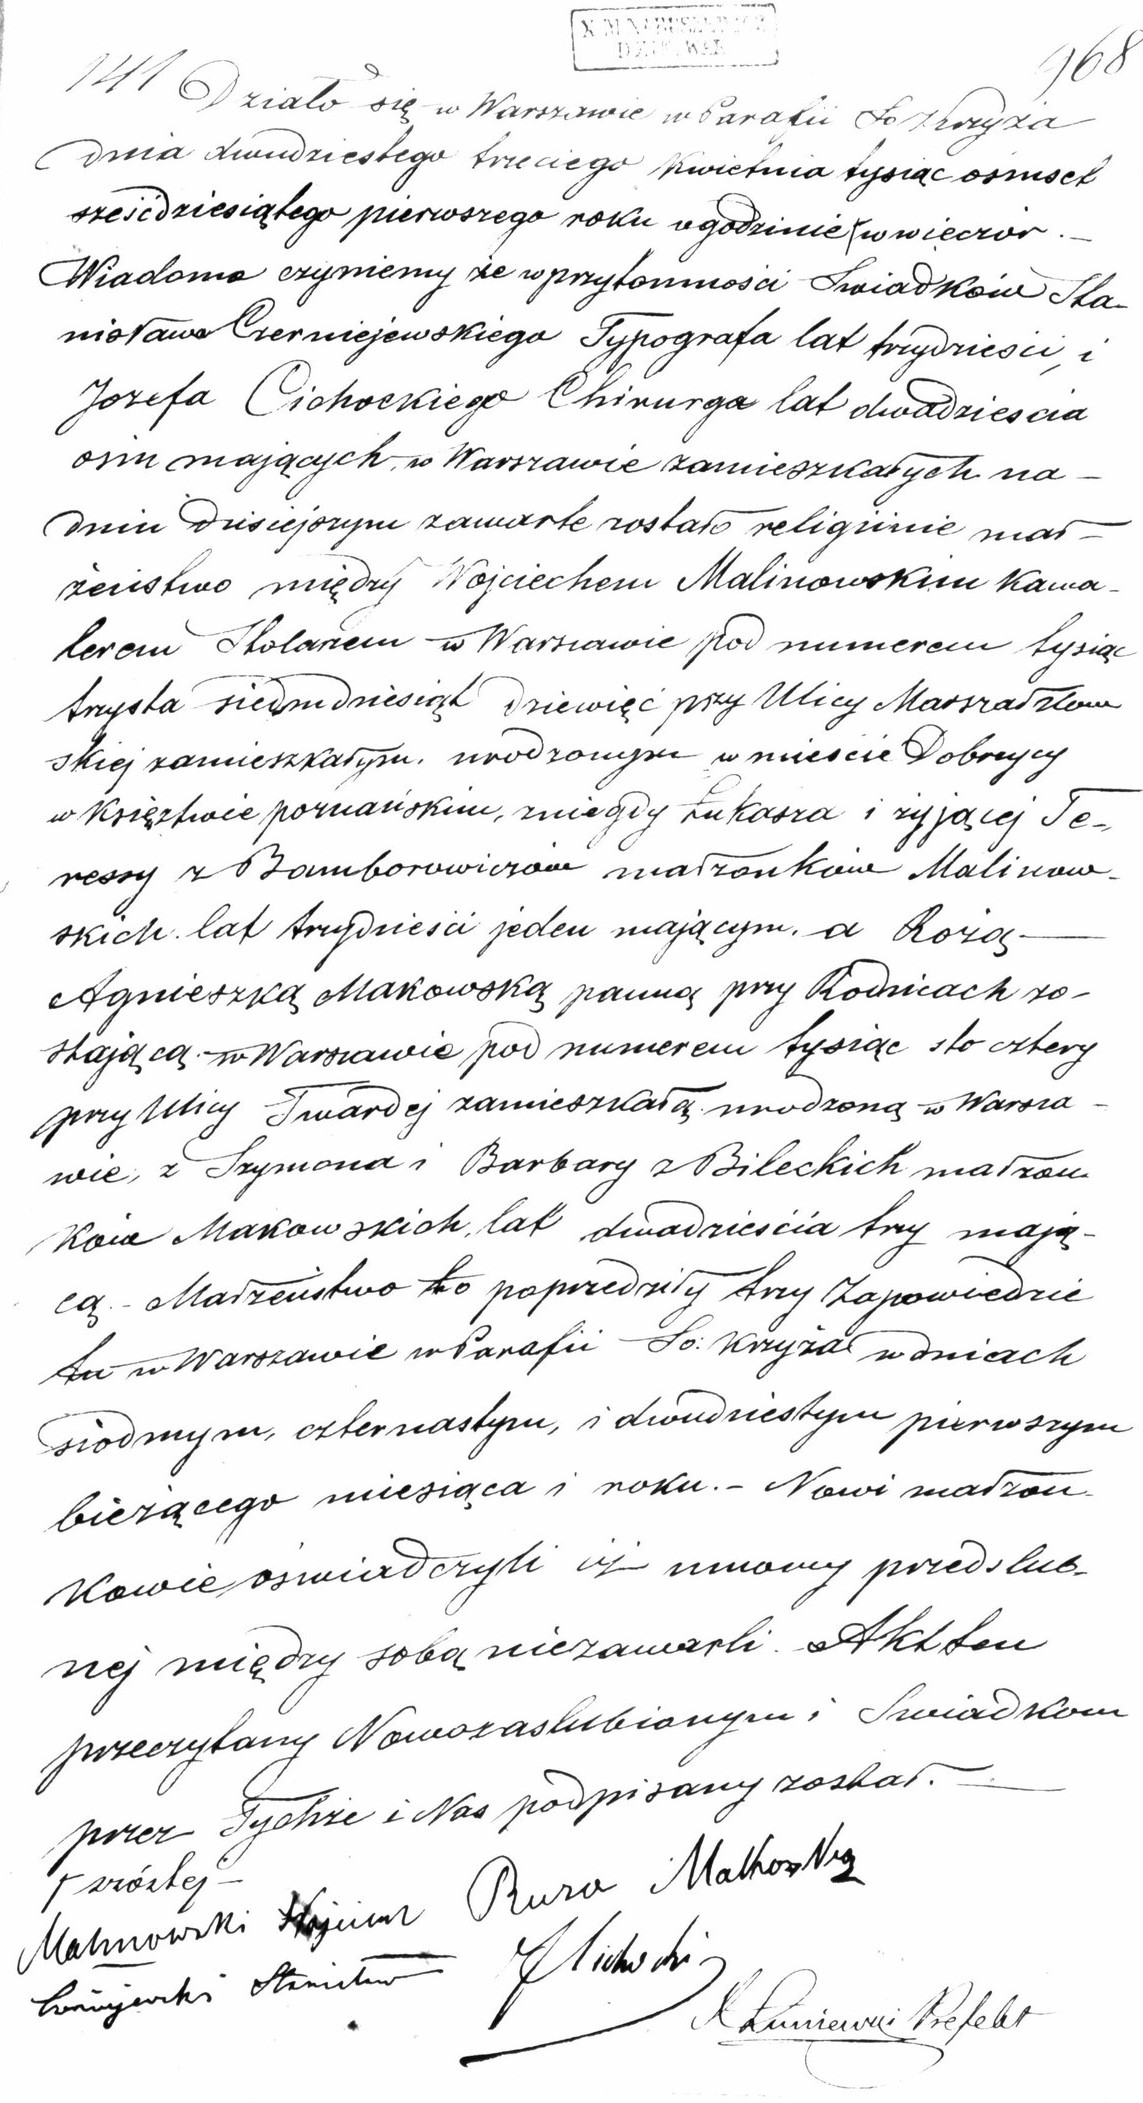 141
968
Działo się w Warszawie w Parafii So Krzyża
dnia dwudziestego trzeciego Kwietnia tysiąc osmset
sześcdziesiątego pierwszego roku o godzinie w wieczór. —
Wiadomo czyniemy że w przytomności Swiadków Sta-
nisława Czerniejewskiego Typografa lat trzydzieści, i
Jozefa Cichockiego Chirurga lat dwadziescia
osm mających, w Warszawie zamieszkałych na —
dniu dzisiejszym zawarte zostało religijnie mał —
żeństwo między Wojciechem Malinowskim Kawa-
lerem Stolarzem w Warszawie pod numerem tysiąc
trzysta siedmdziesiąt dziewięć przy Ulicy Marszałkow
skiej zamieszkałym. urodzonym w mieście Dobrzycy
w Księztwie poznańskim, z niegdy Łukasza i żyjącej Te-
ressy z Bamborowiczów małżonków Malinow-
skich. lat trzydzieści jeden mającym. a Rożą —
Agnieszką Makowską panną przy Rodzicach zo-
stającą. w Warszawie pod numerem tysiąc sto cztery
przy Ulicy Twardej zamieszkałą. urodzoną w Warsza -
wie, z Szymona i Barbary z Bileckich małżon
ków Makowskich, lat dwadzieścia trzy mają-
cą. - Małżeństwo to poprzedziły trzy Zapowiedzie
tu w Warszawie w Parafii So: Krzyża w dniach
siodmym, czternastym, i dwudziestym pierwszym
bieżącego miesiąca i roku. - Nowi małżon-
kowie oświadczyli iż umowy przedslub-
nej między sobą niezawarli. Akt ten
przeczytany Nowozaslubionym i Swiadkom
przez Tychże i Nas podpisany został. —
szóstej —
Malinowski Wojciech Ruza Makoska
Czerniejewski Stanisław J Cichocki
X Łuniewski Prefekt